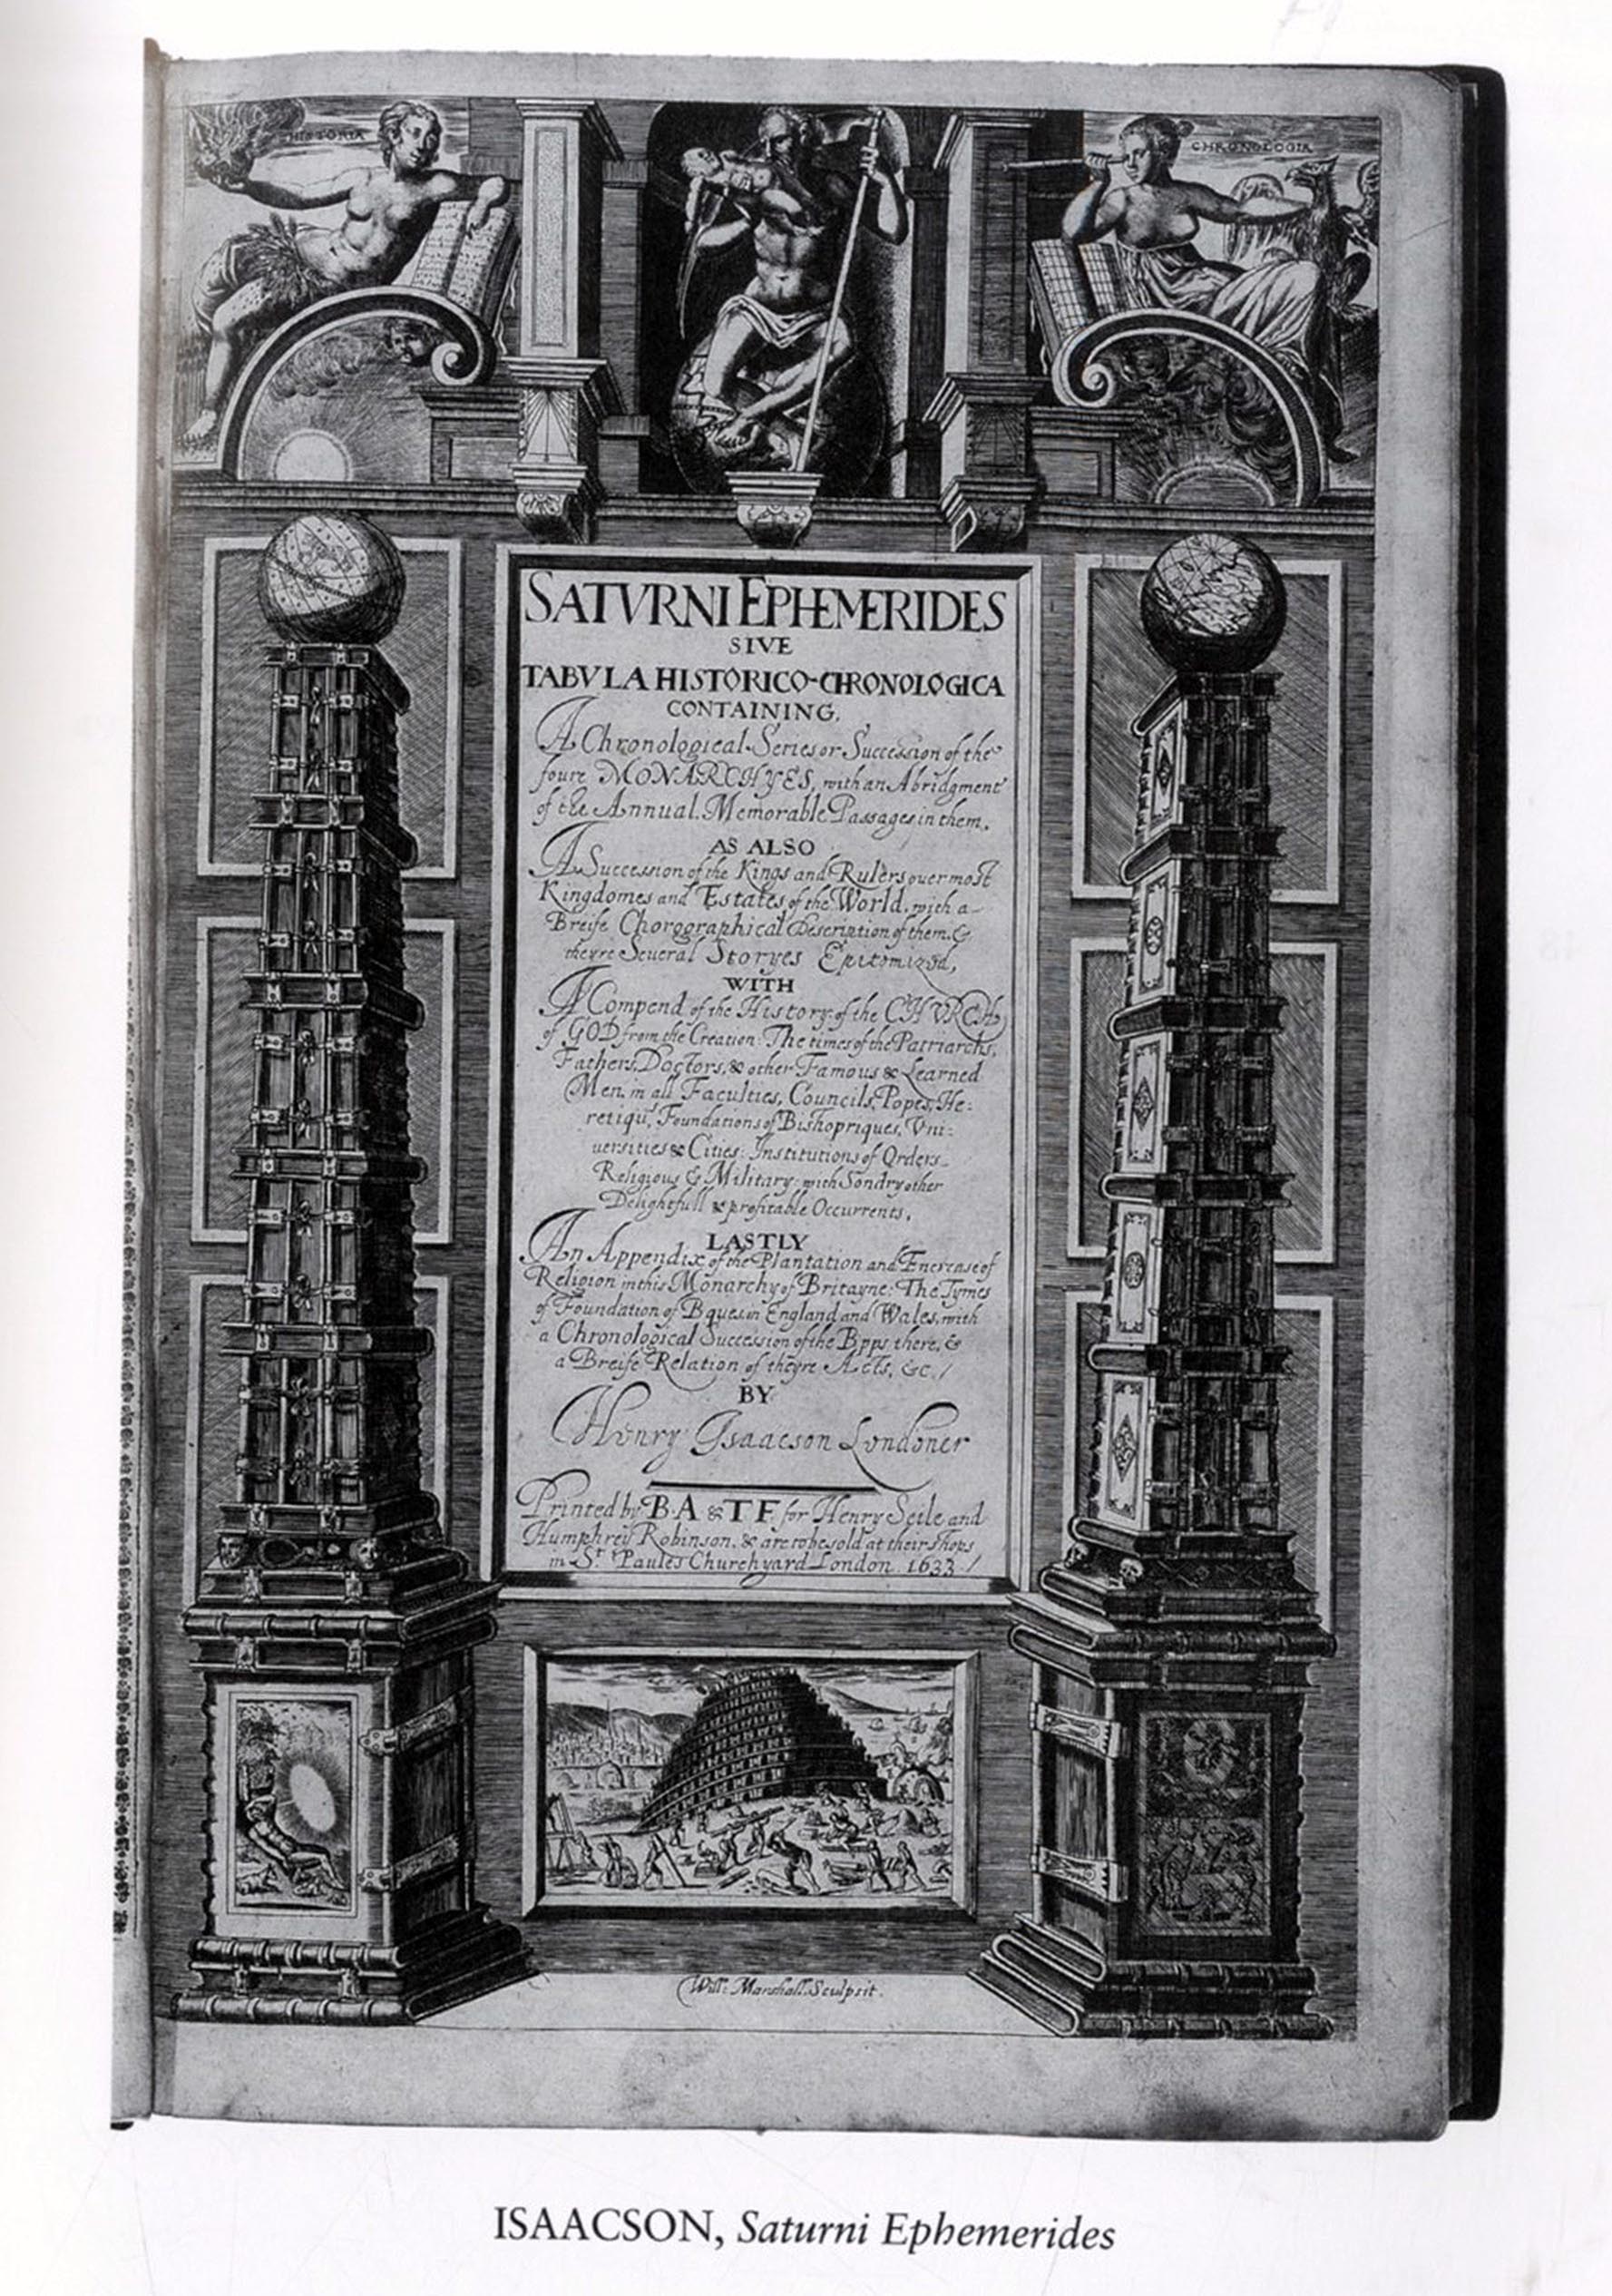 HISTORIA
CHRONOLOGIA
SATVRNI EPHEMERIDES
SIVE
TABVLA HISTORICO-CHRONOLOGICA
CONTAINING.
A Chronological Series or Succession of the
foure MONARCHYES, with an Abridgment
of the Annual Memorable Passages in them.
AS ALSO
A Succession of the Kings and Rulers ouer most
Kingdomes and Estates of the World, with a
Breife Chorographical Description of them, &
theyre Seueral Storyes Epitomizd,
WITH
A Compend of the History of the CHVRCH
of GOD from the Creation: The times of the Patriarchs,
Fathers, Doctors, & other Famous & Learned
Men, in all Faculties, Councils, Popes, He:
retiqu', Foundations of Bishopriques, Vni:
uersities & Cities: Institutions of Orders
Religious & Military: with Sondry other
Delightfull & profitable Occurrents.
LASTLY
An Appendix of the Plantation and Encrease of
Religion in this Monarchy of Britayne: The Tymes
of Foundation of Bques in England and Wales, with
a Chronological Succession of the Bpps there, &
a Breife Relation of theyre Acts, &c /
BY
Henry Isaacson Londoner
Printed by B·A & T F. for Henry Seile and
Humphrey Robinson, & are to be sold at their shops
in St. Paules Churchyard London. 1633 /
Will: Marshall. Sculpsit.
ISAACSON, Saturni Ephemerides